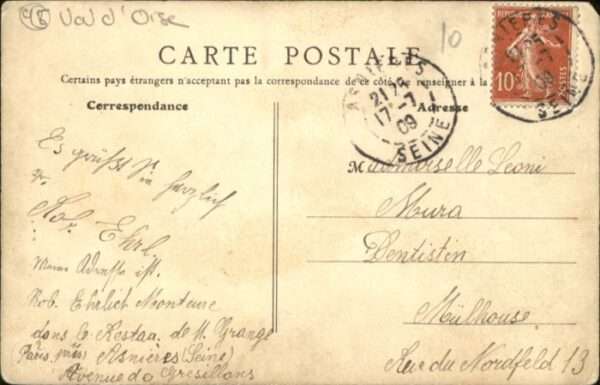 95 Val d'Oise
10
CARTE POSTALE
Certains pays étrangers n'acceptent pas la correspondance de ce côté, se renseigner à la
Correspondance
Adresse
10
POSTES
ASNIERES
21
17-7
09
SEINE
SEINE
Es grüßt Sie herzlich
Rob. Ehrl.
Meine Adresse ist.
Rob. Ehrlich Monteur
dans le Restau. de M. Grange
(Paris près) Asnières (Seine)
Avenue des Gresillons
Mademoiselle Leoni
Mura
Dentistin
Mülhouse
Rue du Nordfeld 13